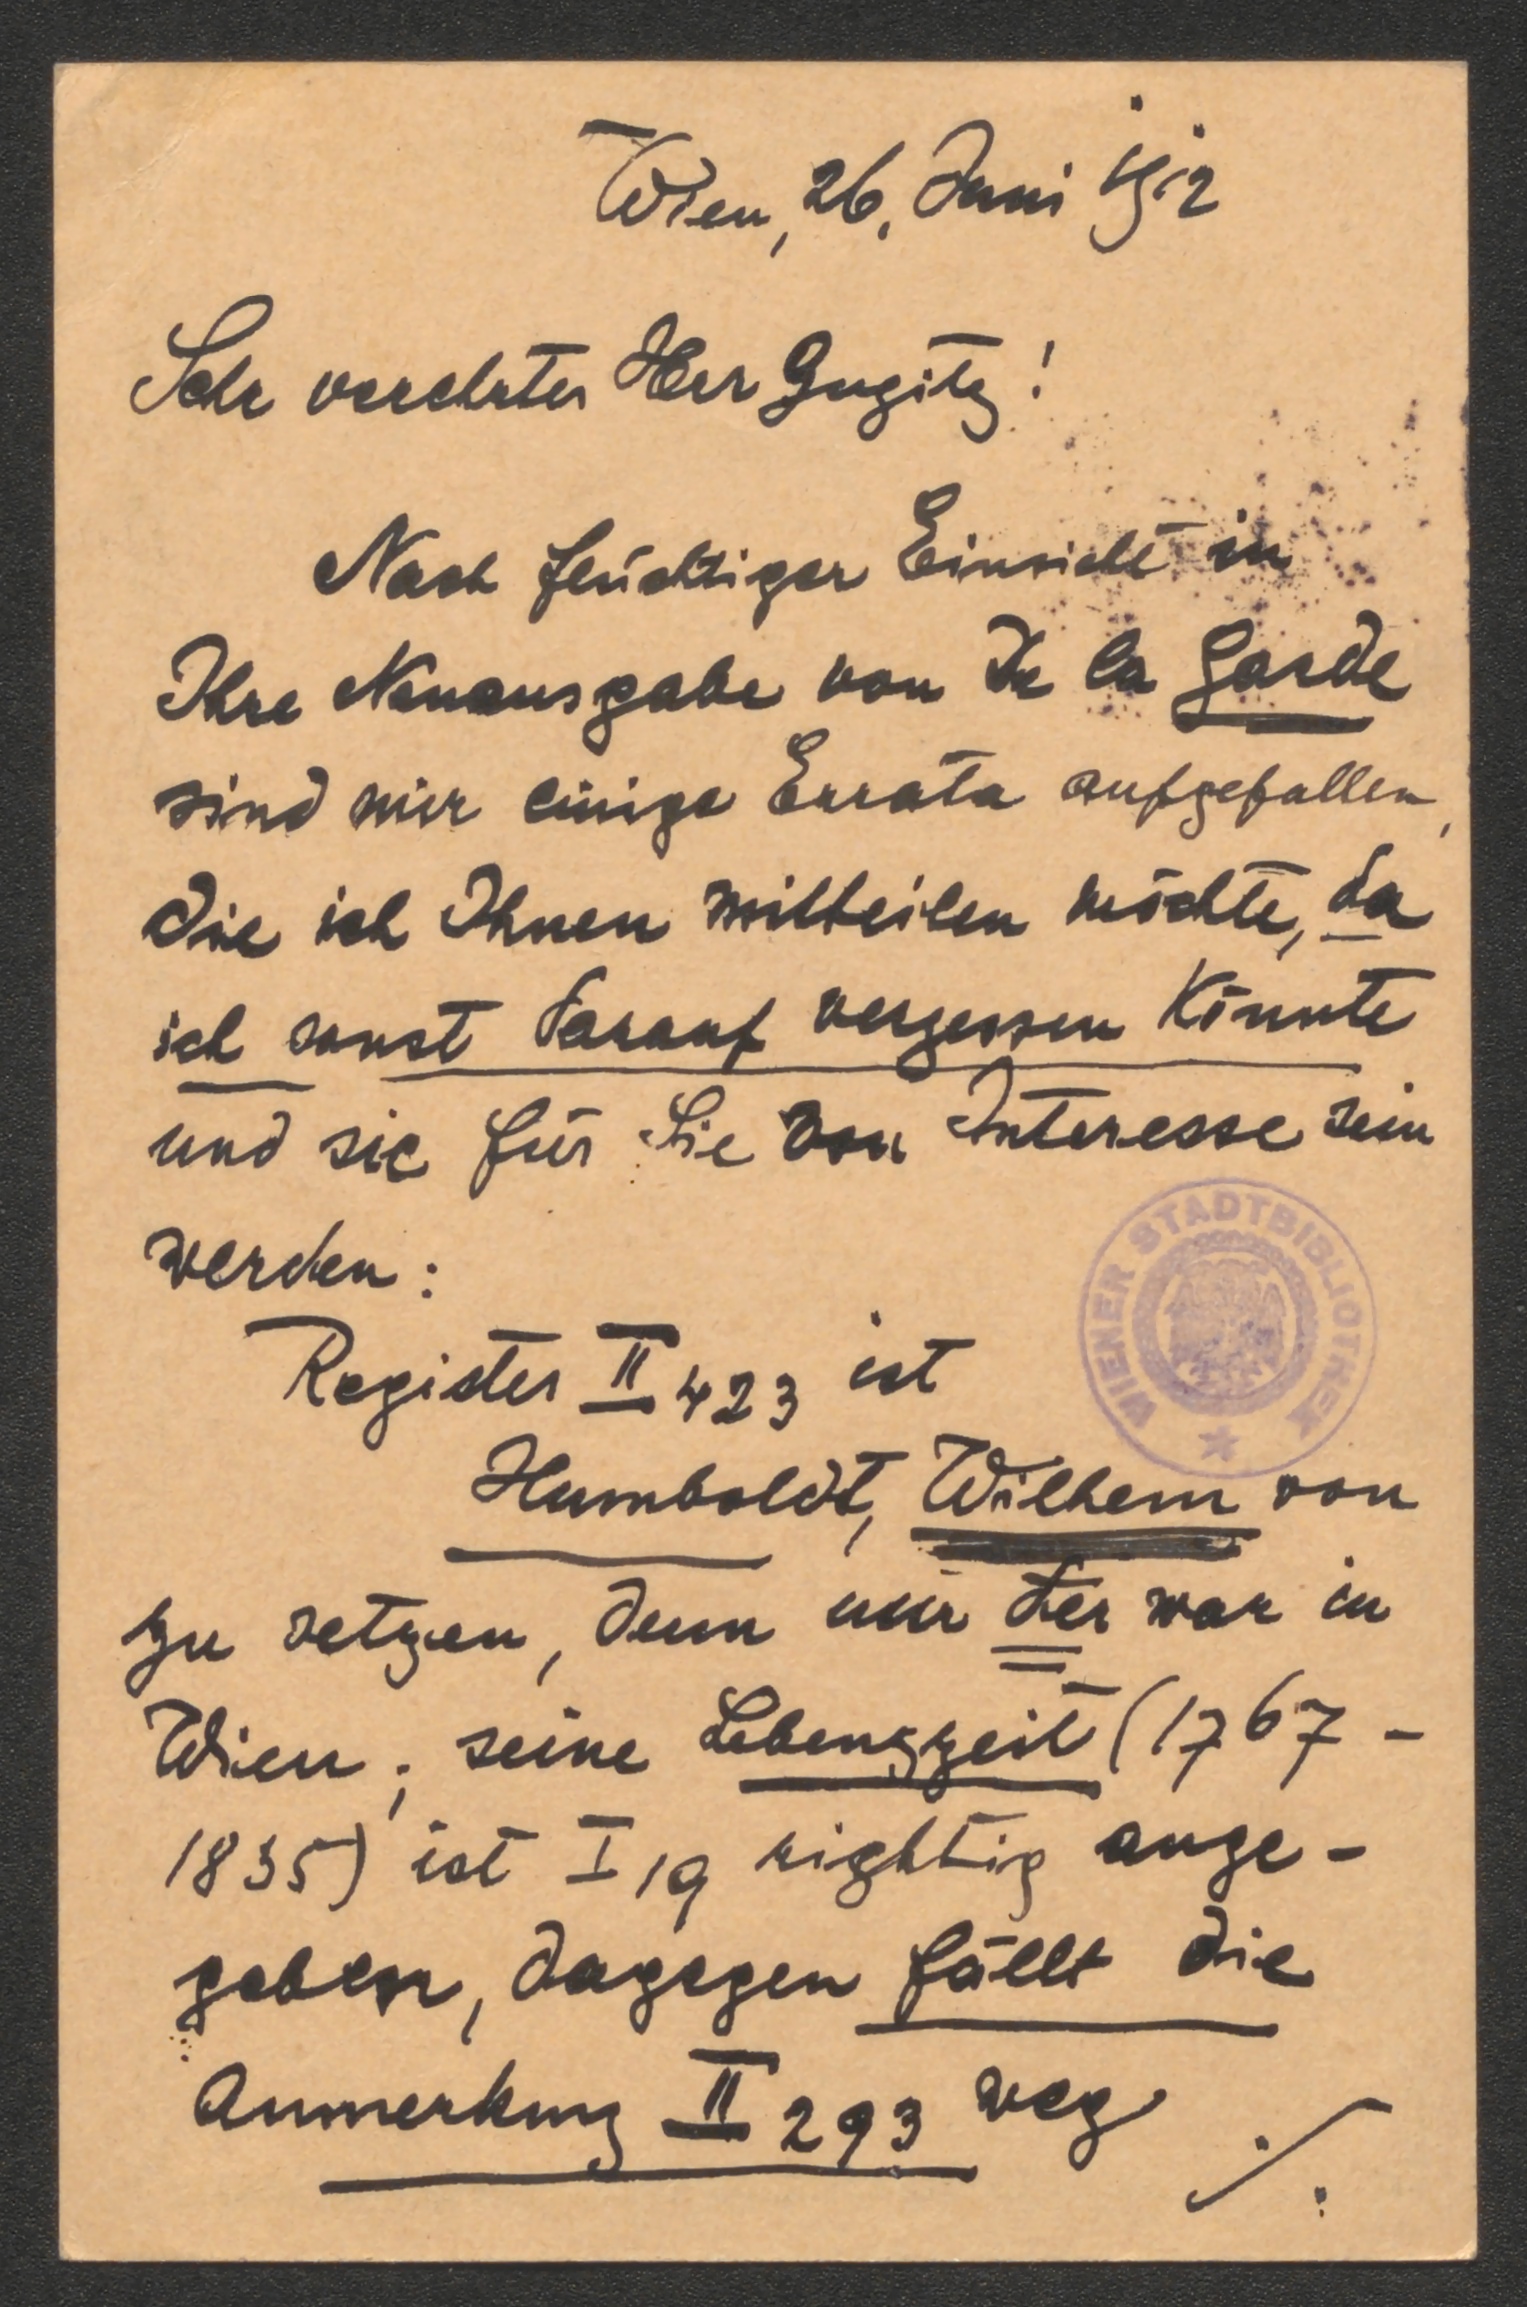 Wien, 26. Juni 1912
Sehr verehrter Herr Gugitz!
Nach flüchtiger Einsicht in
Ihre Neuausgabe von De la Garde
sind mir einige Errata aufgefallen,
die ich Ihnen mitteilen möchte, da
ich sonst darauf vergessen könnte
und sie für Sie von Interesse sein
werden:
Register II 423 ist
Humboldt, Wilhem von
zu setzen, denn nur der war in
Wien; seine Lebenszeit (1767-
1835) ist I 19 richtig ange-
geben, dagegen fällt die
Anmerkung II 293 weg
./.
WIENER STADTBIBLIOTHEK